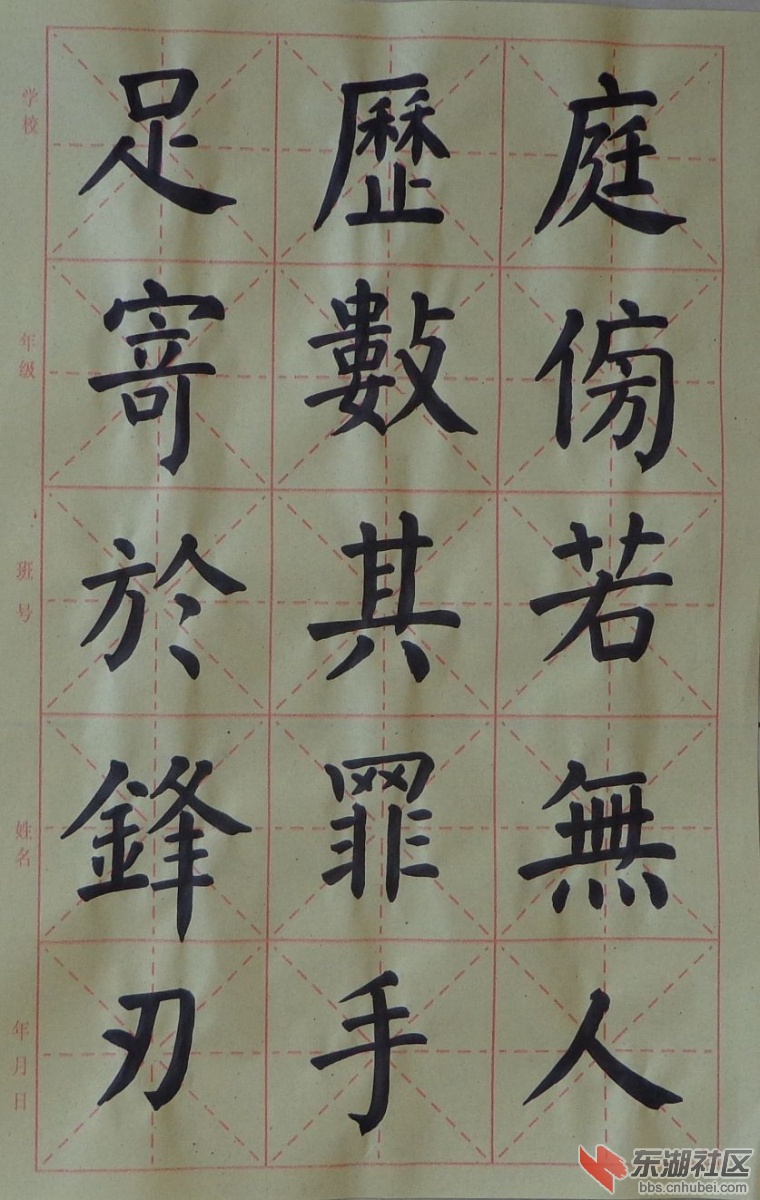 庭傍若無人
歷數其罪手
足寄於鋒刃
学校
年级
班号
姓名
年月日
东湖社区
bbs.cnhubei.com